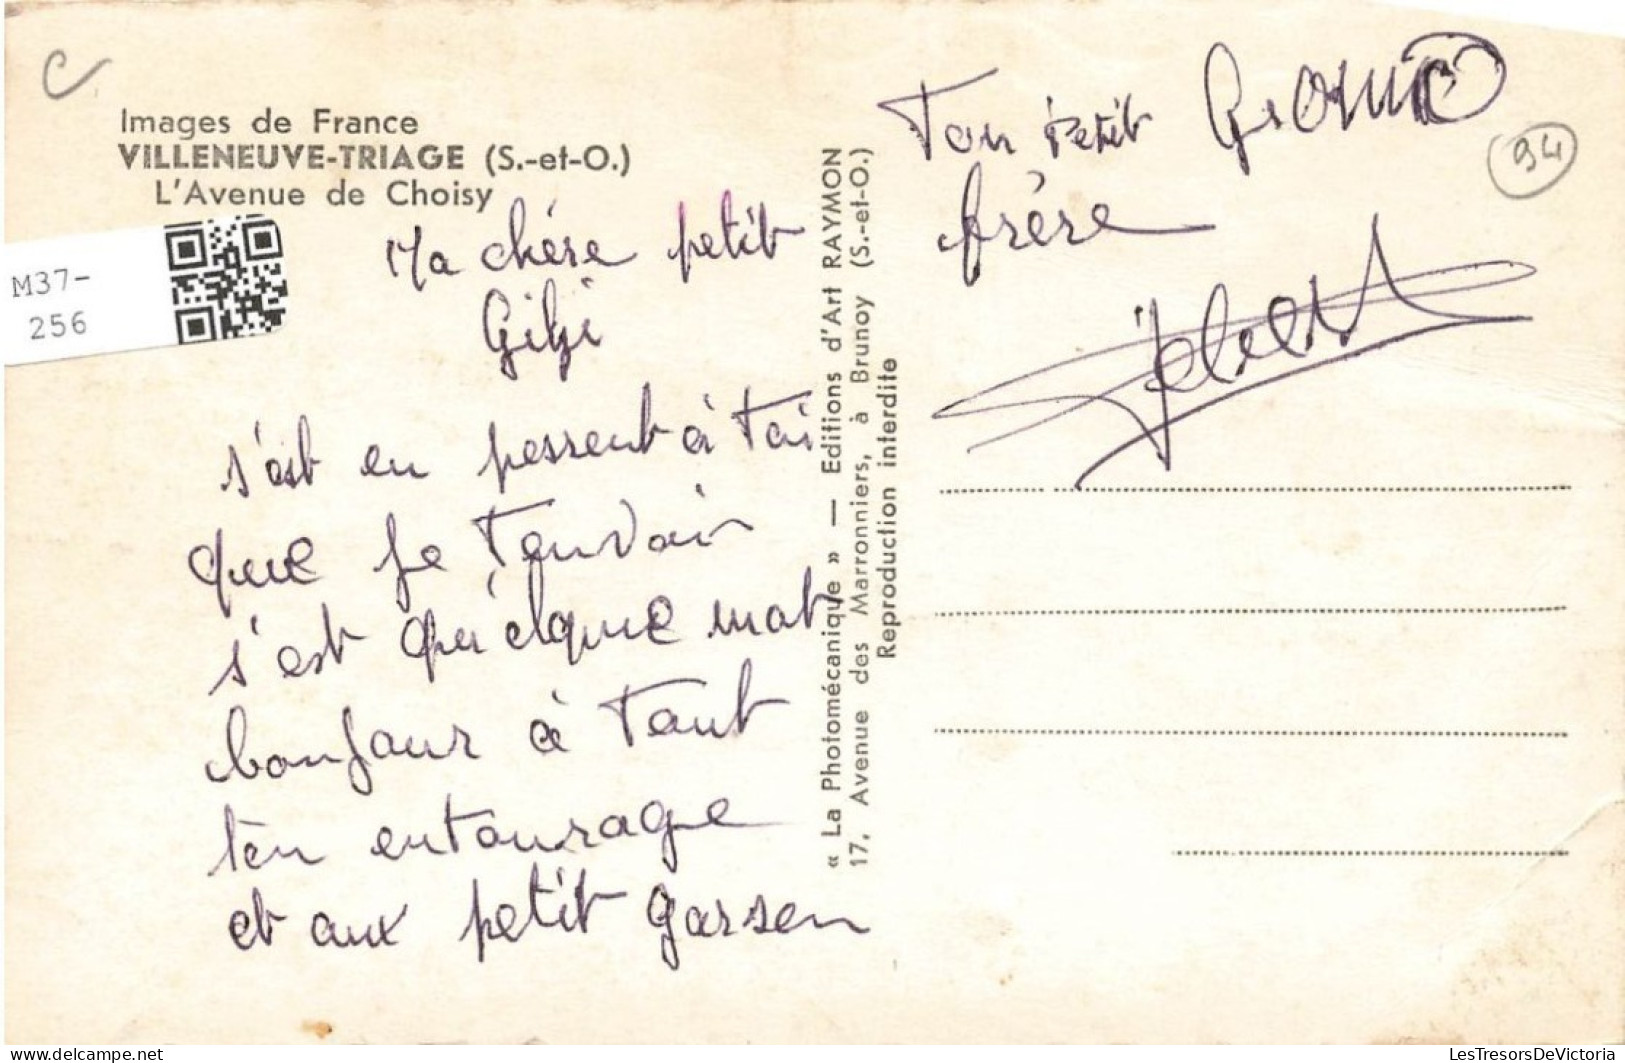 Images de France
VILLENEUVE-TRIAGE (S.-et-O.)
L'Avenue de Choisy
M37-
256
Ma chére petit
Gigi
s'est en pessent à Toi
que je T'envoir
s'est quélque mot
bonjour à Tout
ton entourage
et aux petit garsen
« La Photomécanique » — Editions d'Art RAYMON
17, Avenue des Marronniers, à Brunoy (S.-et-O.)
Reproduction interdite
Ton petit
frère
94
delcampe.net
LesTresorsDeVictoria